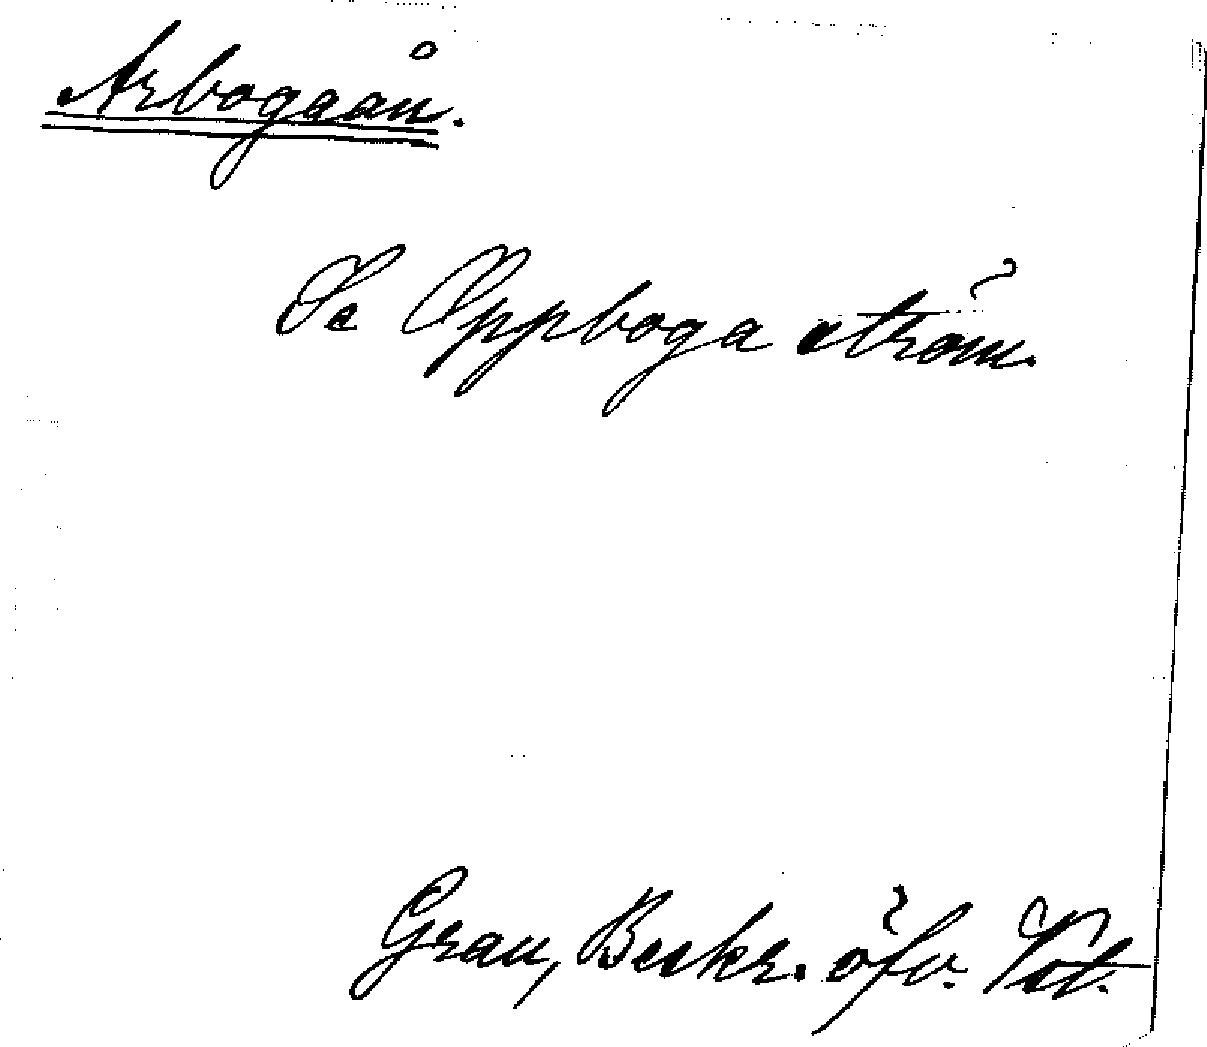 Arbogaån.
Se Oppboga ström.
Grau, Beskr. öfv. Vst.